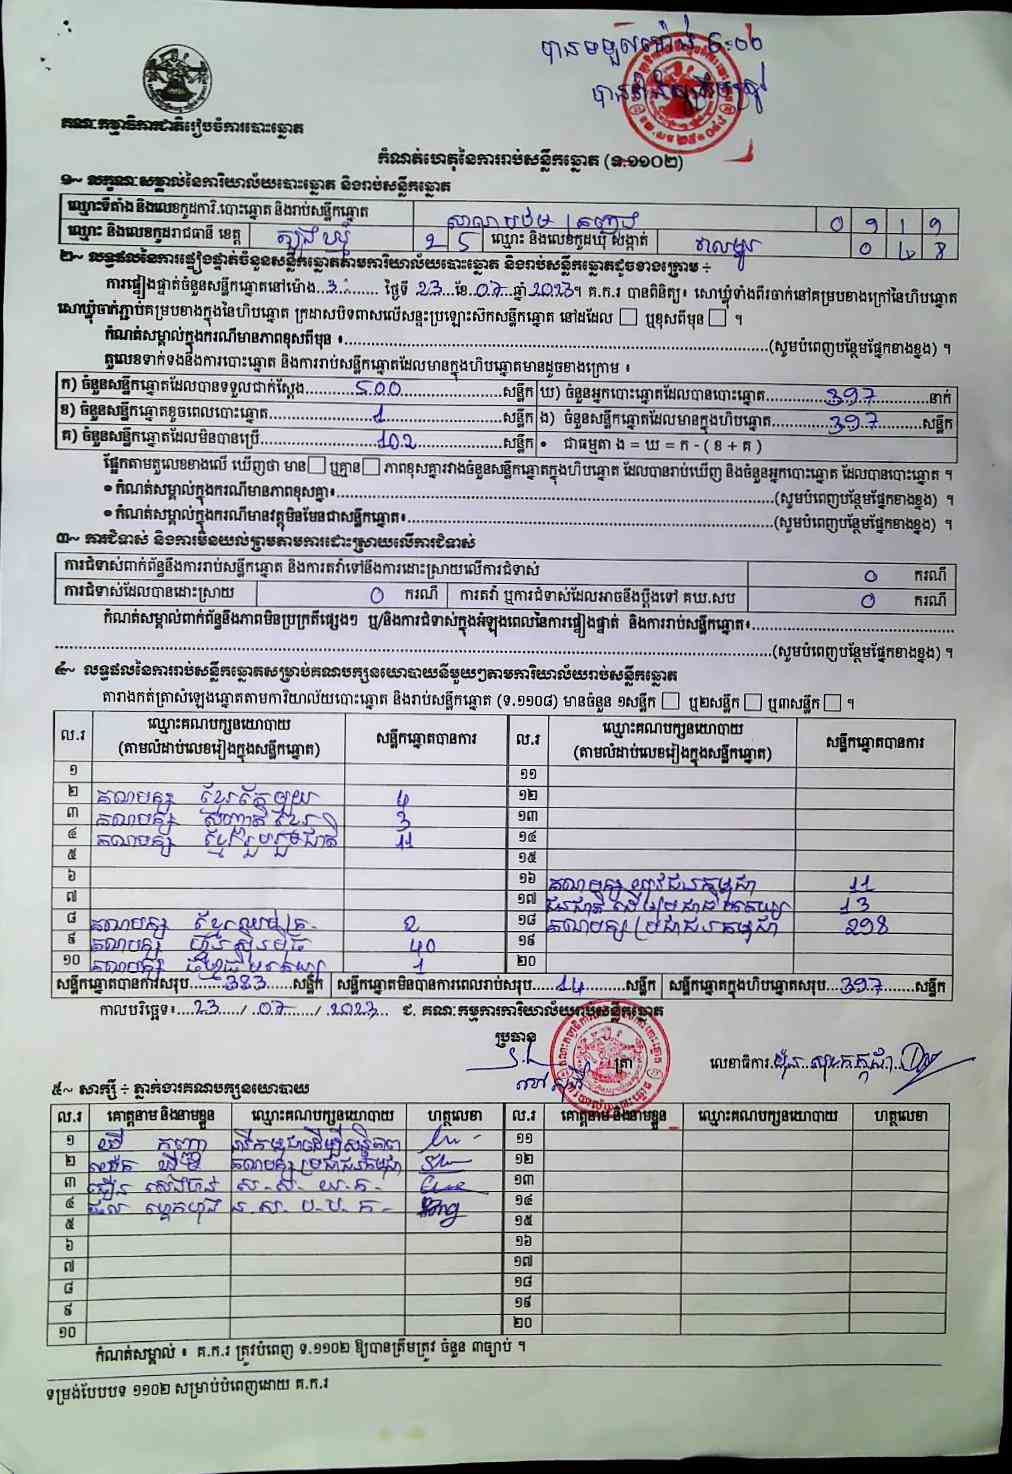 បានទទួលម៉ោង ៦:០០
គណៈកម្មាធិការជាតិរៀបចំការបោះឆ្នោត
កំណត់ហេតុនៃការរាប់សន្លឹកឆ្នោត (ទ.១១០២)
១~ លក្ខណៈសម្គាល់នៃការិយាល័យបោះឆ្នោត និងរាប់សន្លឹកឆ្នោត
ឈ្មោះទីតាំង និងលេខកូដការិ.បោះឆ្នោត និងរាប់សន្លឹកឆ្នោត
ឈ្មោះ និងលេខកូដរាជធានី ខេត្ត ត្បូងឃ្មុំ 2 5 ឈ្មោះ និងលេខកូដឃុំ សង្កាត់
២~ លទ្ធផលនៃការផ្ទៀងផ្ទាត់ចំនួនសន្លឹកឆ្នោតតាមការិយាល័យបោះឆ្នោត និងរាប់សន្លឹកឆ្នោតដូចខាងក្រោម ÷
ការផ្ទៀងផ្ទាត់ចំនួនសន្លឹកឆ្នោតនៅម៉ោង...3... ថ្ងៃទី 23 ខែ 07 ឆ្នាំ 2023។ គ.ក.រ បានពិនិត្យ៖ សោឃ្លុំទាំងពីរចាក់នៅគម្របខាងក្រៅនៃហិបឆ្នោត
សោឃ្លុំចាក់ភ្ជាប់គម្របខាងក្នុងនៃហិបឆ្នោត ក្រដាសបិទពាសលើសន្ទះប្រឡោះស៊កសន្លឹកឆ្នោត នៅដដែល □ ឬខុសពីមុន □ ។
កំណត់សម្គាល់ក្នុងករណីមានភាពខុសពីមុន ៖...(សូមបំពេញបន្ថែមផ្នែកខាងខ្នង) ។
តួលេខទាក់ទងនឹងការបោះឆ្នោត និងការរាប់សន្លឹកឆ្នោតដែលមានក្នុងហិបឆ្នោតមានដូចខាងក្រោម ៖
ក) ចំនួនសន្លឹកឆ្នោតដែលបានទទួលជាក់ស្ដែង...500...សន្លឹក ឃ) ចំនួនអ្នកបោះឆ្នោតដែលបានបោះឆ្នោត...397...នាក់
ខ) ចំនួនសន្លឹកឆ្នោតខូចពេលបោះឆ្នោត...1...សន្លឹក ង) ចំនួនសន្លឹកឆ្នោតដែលមានក្នុងហិបឆ្នោត...397...សន្លឹក
គ) ចំនួនសន្លឹកឆ្នោតដែលមិនបានប្រើ...102...សន្លឹក • ជាធម្មតា ង = ឃ = ក - ( ខ + គ )
ផ្អែកតាមតួលេខខាងលើ ឃើញថា មាន □ ឬគ្មាន □ ភាពខុសគ្នារវាងចំនួនសន្លឹកឆ្នោតក្នុងហិបឆ្នោត ដែលបានរាប់ឃើញ និងចំនួនអ្នកបោះឆ្នោត ដែលបានបោះឆ្នោត ។
• កំណត់សម្គាល់ក្នុងករណីមានភាពខុសគ្នា៖...(សូមបំពេញបន្ថែមផ្នែកខាងខ្នង) ។
• កំណត់សម្គាល់ក្នុងករណីមានវត្ថុមិនមែនជាសន្លឹកឆ្នោត៖...(សូមបំពេញបន្ថែមផ្នែកខាងខ្នង) ។
៣~ ការជំទាស់ និងការមិនយល់ព្រមតាមការដោះស្រាយលើការជំទាស់
ការជំទាស់ពាក់ព័ន្ធនឹងការរាប់សន្លឹកឆ្នោត និងការតវ៉ាទៅនឹងការដោះស្រាយលើការជំទាស់ 0 ករណី
ការជំទាស់ដែលបានដោះស្រាយ 0 ករណី ការតវ៉ា ឬការជំទាស់ដែលអាចនឹងប្ដឹងទៅ គឃ.សប 0 ករណី
កំណត់សម្គាល់ពាក់ព័ន្ធនឹងភាពមិនប្រក្រតីផ្សេងៗ ឬ/និងការជំទាស់ក្នុងអំឡុងពេលនៃការផ្ទៀងផ្ទាត់ និងការរាប់សន្លឹកឆ្នោត៖...
...(សូមបំពេញបន្ថែមផ្នែកខាងខ្នង) ។
៤~ លទ្ធផលនៃការរាប់សន្លឹកឆ្នោតសម្រាប់គណបក្សនយោបាយនីមួយៗតាមការិយាល័យរាប់សន្លឹកឆ្នោត
តារាងកត់ត្រាសំឡេងឆ្នោតតាមការិយាល័យបោះឆ្នោត និងរាប់សន្លឹកឆ្នោត (ទ.១១០៨) មានចំនួន ១សន្លឹក □ ឬ២សន្លឹក □ ឬ៣សន្លឹក □ ។
ល.រ ឈ្មោះគណបក្សនយោបាយ (តាមលំដាប់លេខរៀងក្នុងសន្លឹកឆ្នោត) សន្លឹកឆ្នោតបានការ ល.រ ឈ្មោះគណបក្សនយោបាយ (តាមលំដាប់លេខរៀងក្នុងសន្លឹកឆ្នោត) សន្លឹកឆ្នោតបានការ
១ ១១
២ គណបក្ស ខ្មែរតែមួយ 4 ១២
៣ គណបក្ស សញ្ជាតិខ្មែរ 3 ១៣
៤ គណបក្ស ខ្មែររួបរួមជាតិ 11 ១៤
៥ ១៥
៦ ១៦ គណបក្ស យុវជនកម្ពុជា 11
៧ ១៧ 13
៨ គណបក្ស 2 ១៨ គណបក្ស ប្រជាជនកម្ពុជា 298
៩ គណបក្ស ហ្វ៊ុនស៊ិនប៉ិច 40 ១៩
១០ គណបក្ស ធម្មាធិបតេយ្យ 1 ២០
សន្លឹកឆ្នោតបានការសរុប...383...សន្លឹក សន្លឹកឆ្នោតមិនបានការពេលរាប់សរុប...14...សន្លឹក សន្លឹកឆ្នោតក្នុងហិបឆ្នោតសរុប...397...សន្លឹក
កាលបរិច្ឆេទ៖...23.../...07.../...2023... ជ. គណៈកម្មការការិយាល័យរាប់សន្លឹកឆ្នោត
ប្រធាន ត្រា លេខាធិការ
៥~ សាក្សី ÷ ភ្នាក់ងារគណបក្សនយោបាយ
ល.រ គោត្តនាម និងនាមខ្លួន ឈ្មោះគណបក្សនយោបាយ ហត្ថលេខា ល.រ គោត្តនាម និងនាមខ្លួន ឈ្មោះគណបក្សនយោបាយ ហត្ថលេខា
១ ១១
២ គណបក្ស ប្រជាជនកម្ពុជា ១២
៣ ១៣
៤ ១៤
៥ ១៥
៦ ១៦
៧ ១៧
៨ ១៨
៩ ១៩
១០ ២០
កំណត់សម្គាល់ ៖ គ.ក.រ ត្រូវបំពេញ ទ.១១០២ ឱ្យបានត្រឹមត្រូវ ចំនួន ៣ច្បាប់ ។
ទម្រង់បែបបទ ១១០២ សម្រាប់បំពេញដោយ គ.ក.រ